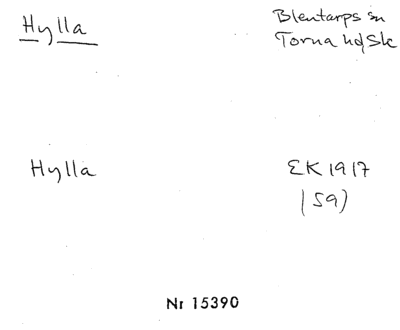 Hylla
Blentarps sn
Torna hd Sk
Hylla
EK 1917
(59)
Nr 15390